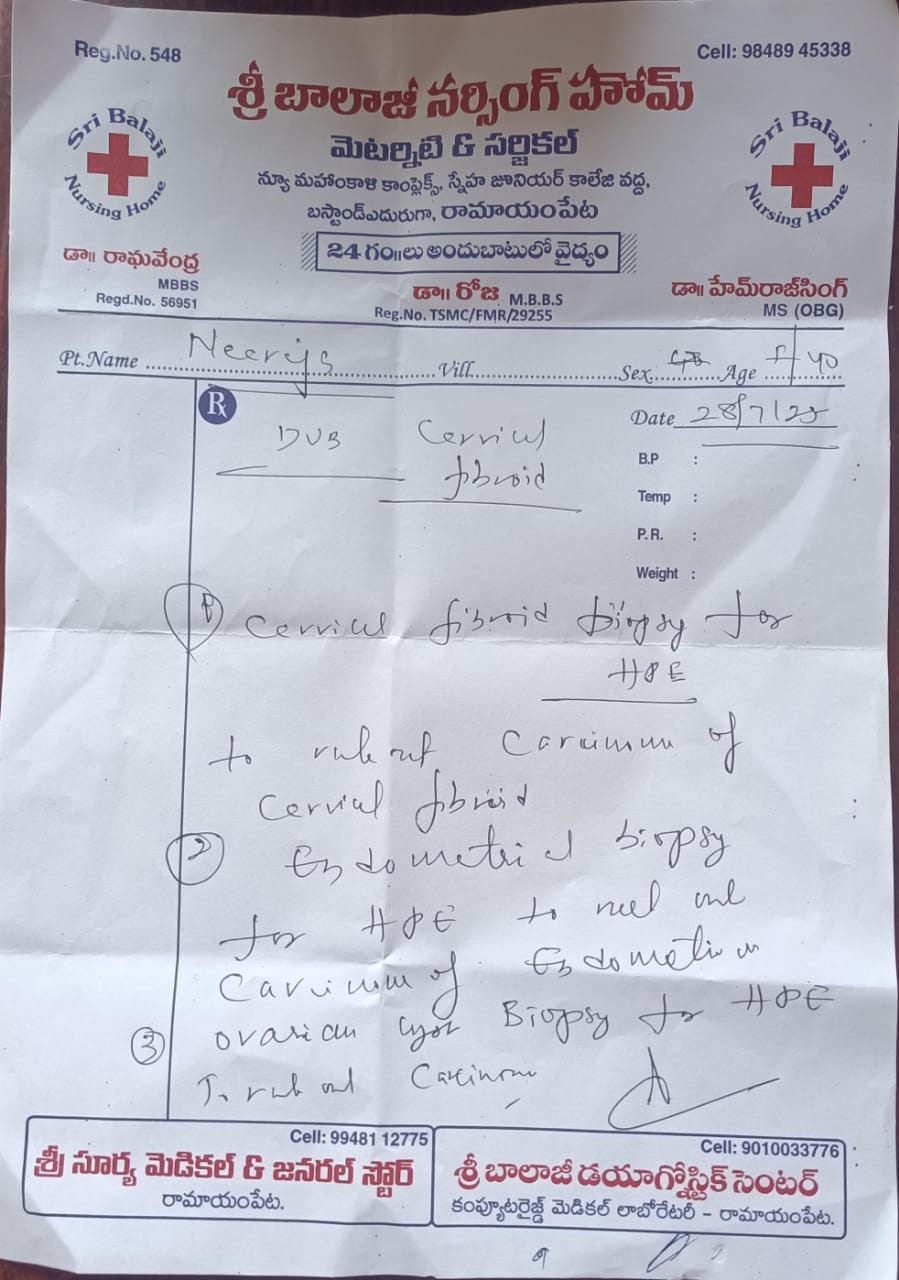 Reg.No. 548
Cell: 98489 45338
శ్రీ బాలాజీ నర్సింగ్ హోమ్
Sri Balaji Nursing Home
Sri Balaji Nursing Home
మెటర్నిటి & సర్జికల్
న్యూ మహంకాళి కాంప్లెక్స్, స్నేహ జూనియర్ కాలేజి వద్ద,
బస్టాండ్ఎదురుగా, రామాయంపేట
24 గం॥లు అందుబాటులో వైద్యం
డా॥ రాఘవేంద్ర
MBBS
Regd.No. 56951
డా॥ రోజ M.B.B.S
Reg.No. TSMC/FMR/29255
డా॥ హేమ్‌రాజ్‌సింగ్
MS (OBG)
Pt.Name Vill Sex Age 40
Rx
Date 28/7/25
DUB Cervical
fibroid
B.P :
Temp :
P.R. :
Weight :
1 Cervical fibroid biopsy for
HPE
to rule out Carcinoma of
Cervical fibroid
2 Endometrial biopsy
for HPE to rule out
Carcinoma of Endometrium
3 ovarian cyst Biopsy for HPE
To rule out Carcinoma
Cell: 99481 12775
శ్రీ సూర్య మెడికల్ & జనరల్ స్టోర్
రామాయంపేట.
Cell: 9010033776
శ్రీ బాలాజీ డయాగ్నోస్టిక్ సెంటర్
కంప్యూటరైజ్డ్ మెడికల్ లాబోరేటరీ - రామాయంపేట.